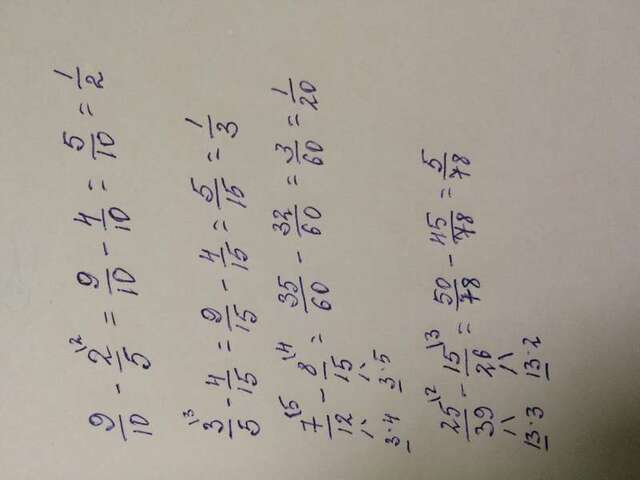 9/10 - 2\2/5 = 9/10 - 4/10 = 5/10 = 1/2
3\3/5 - 4/15 = 9/15 - 4/15 = 5/15 = 1/3
7\5/12 - 8\4/15 = 35/60 - 32/60 = 3/60 = 1/20
3·4 3·5
25\2/39 - 15\3/26 = 50/78 - 45/78 = 5/78
13·3 13·2